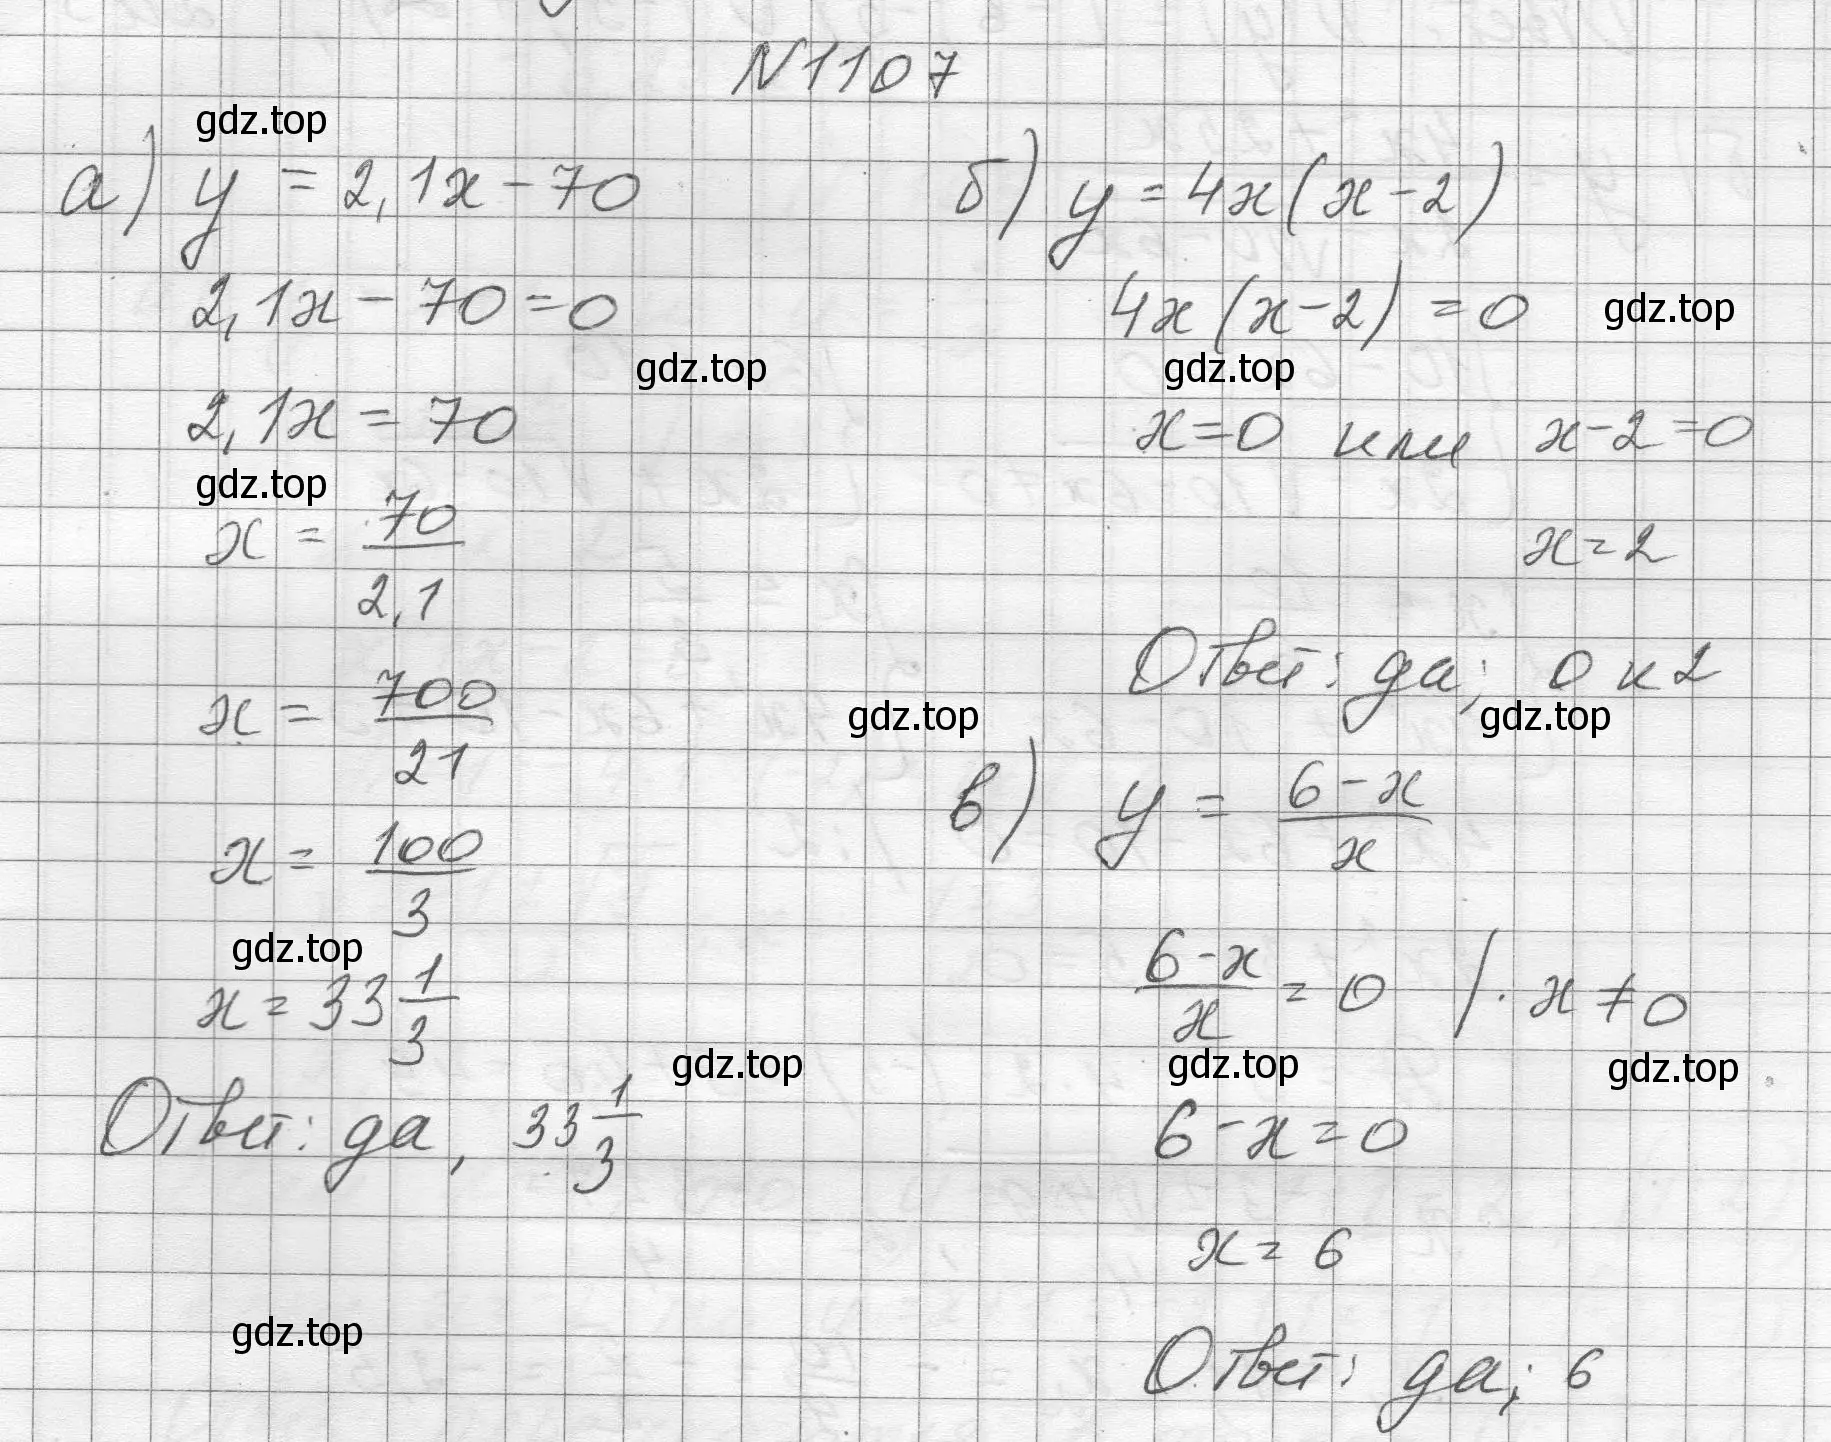 N1107
gdz.top
а) y = 2,1x - 70
2,1x - 70 = 0
gdz.top
2,1x = 70
gdz.top
x = 70/2,1
x = 700/21
x = 100/3
gdz.top
x = 33 1/3
gdz.top
Ответ: да, 33 1/3
gdz.top
б) y = 4x(x-2)
4x(x-2) = 0 gdz.top
gdz.top
x=0 или x-2=0
x=2
Ответ: да; 0 и 2
gdz.top gdz.top
в) y = 6-x/x
6-x/x = 0 /· x ≠ 0
gdz.top gdz.top
6-x=0
x = 6
Ответ: да; 6